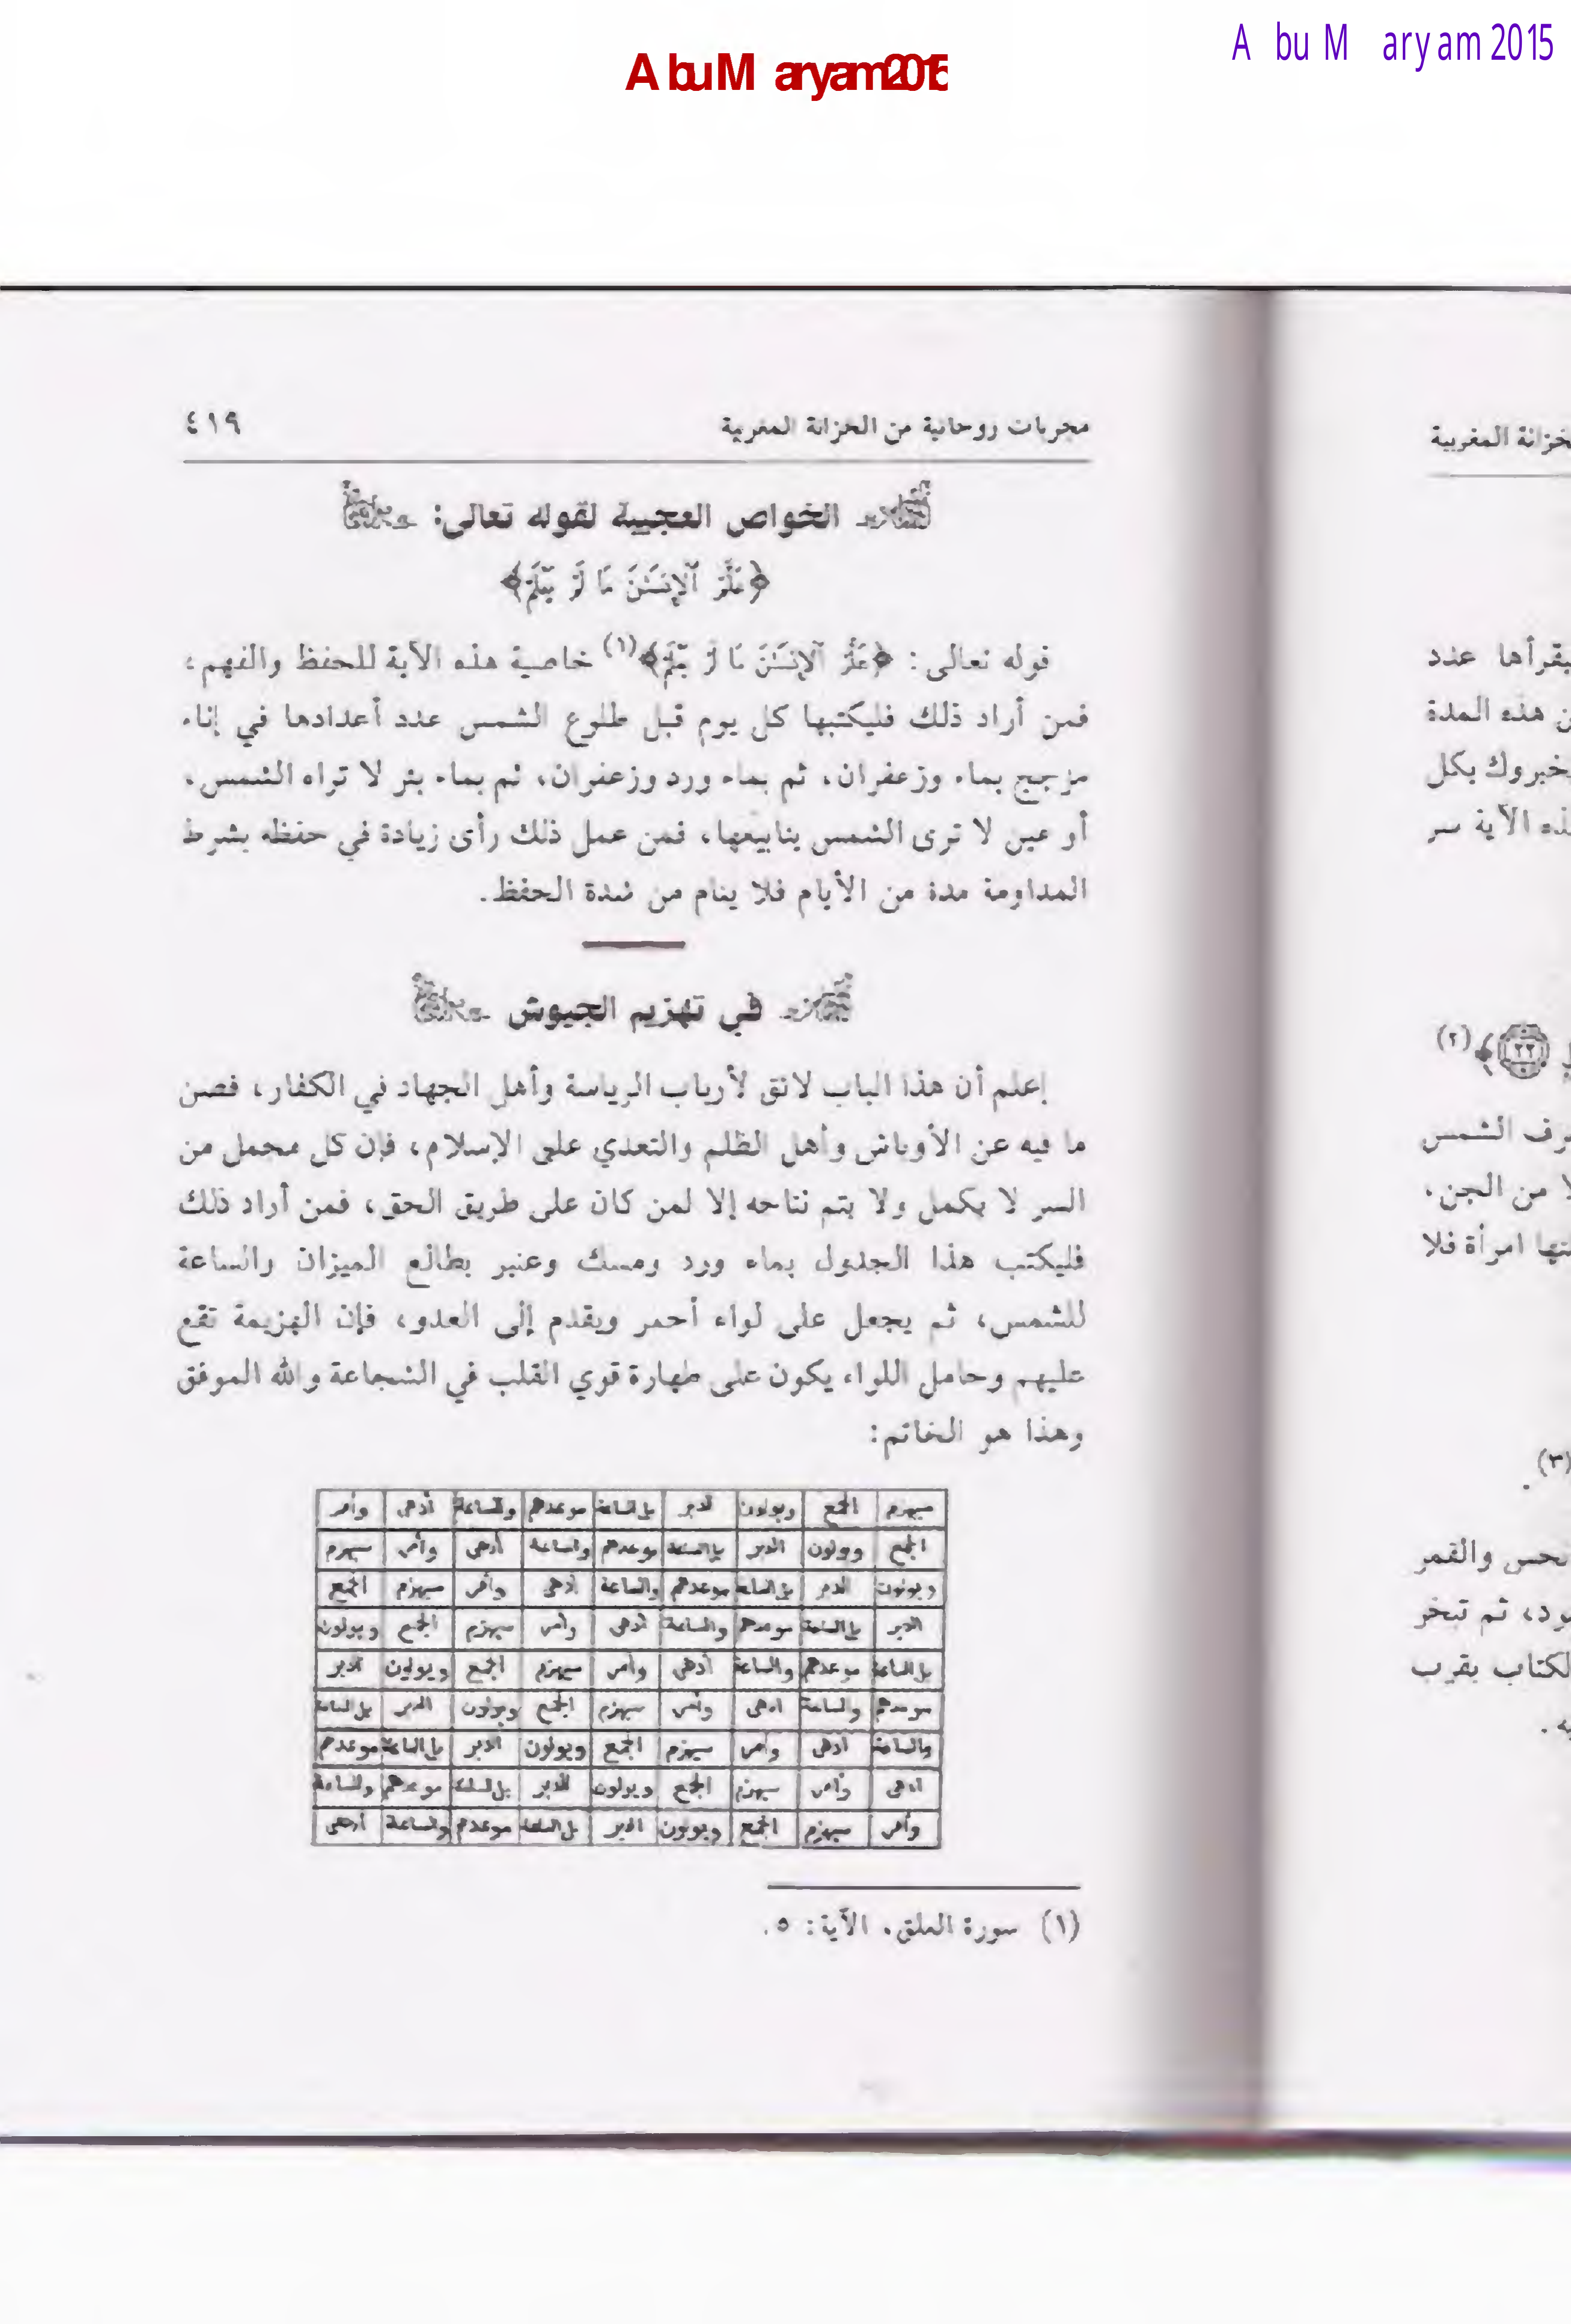 Abu Maryam 2015
Abu Maryam 2015
مجربات روحانية من الخزانة المغربية ٤١٩
الخواص العجيبة لقوله تعالى:
﴿عَلَّمَ ٱلْإِنسَٰنَ مَا لَمْ يَعْلَمْ﴾
قوله تعالى: ﴿عَلَّمَ ٱلْإِنسَٰنَ مَا لَمْ يَعْلَمْ﴾(١) خاصية هذه الآية للحفظ والفهم،
فمن أراد ذلك فليكتبها كل يوم قبل طلوع الشمس عدد أعدادها في إناء
مزجج بماء وزعفران، ثم بماء ورد وزعفران، ثم بماء بئر لا تراه الشمس،
أو عين لا ترى الشمس ينابيعها، فمن عمل ذلك رأى زيادة في حفظه بشرط
المداومة مدة من الأيام فلا ينام من شدة الحفظ.
في تهزيم الجيوش
إعلم أن هذا الباب لائق لأرباب الرياسة وأهل الجهاد في الكفار، فصن
ما فيه عن الأوباش وأهل الظلم والتعدي على الإسلام، فإن كل محمل من
السر لا يكمل ولا يتم نتاجه إلا لمن كان على طريق الحق، فمن أراد ذلك
فليكتب هذا الجدول بماء ورد ومسك وعنبر بطالع الميزان والساعة
للشمس، ثم يجعل على لواء أحمر ويقدم إلى العدو، فإن الهزيمة تقع
عليهم وحامل اللواء يكون على طهارة قوي القلب في الشجاعة والله الموفق
وهذا هو الخاتم:
سيهزم الجمع ويولون الدبر بل الساعة موعدهم والساعة أدهى وأمر
الجمع ويولون الدبر بل الساعة موعدهم والساعة أدهى وأمر سيهزم
ويولون الدبر بل الساعة موعدهم والساعة أدهى وأمر سيهزم الجمع
الدبر بل الساعة موعدهم والساعة أدهى وأمر سيهزم الجمع ويولون
بل الساعة موعدهم والساعة أدهى وأمر سيهزم الجمع ويولون الدبر
موعدهم والساعة ادهى وأمر سيهزم الجمع ويولون الدبر بل الساعة
والساعة أدهى وأمر سيهزم الجمع ويولون الدبر بل الساعة موعدهم
أدهى وأمر سيهزم الجمع ويولون الدبر بل الساعة موعدهم والساعة
وأمر سيهزم الجمع ويولون الدبر بل الساعة موعدهم والساعة أدهى
(١) سورة العلق، الآية: ٥.
المغربية
عدد
هذه المدة
بكل
الآية سر
﴿٢٢﴾(٢)
الشمس
من الجن،
امرأة فلا
(٣).
والقمر
ثم تبخر
بقرب